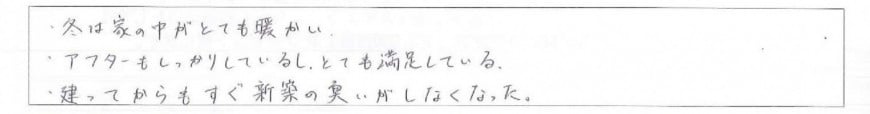 ・冬は家の中がとても暖かい.
・アフターもしっかりしているし、とても満足している.
・建ってからもすぐ新築の臭いがしなくなった。